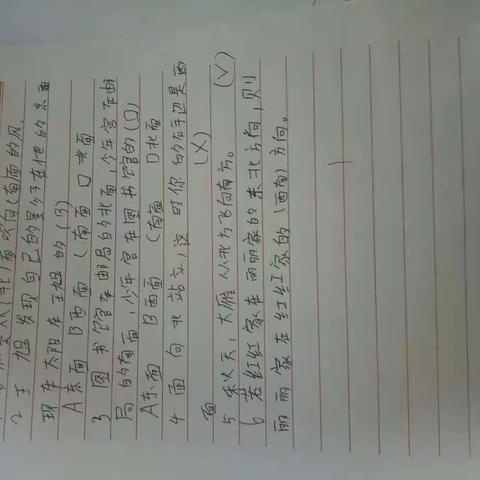 从(北)面吹向(南面的风。
2 王旭发现自己的影子在他的东面
现在太阳在王旭的(B)
A东面 B西面 (南面 D北面
3 图书馆在邮局的北面,少年宫在邮
局的南面,少年宫在图书馆的(D)
A东面 B西面 (南面 D北面
4 面向北站立,这时你的右手边是西
面 (X)
5 秋天,大雁从北方飞向南方。 (√)
6 若红红家在丽丽家的东北方向,则
丽丽家在红红家的(西南)方向。